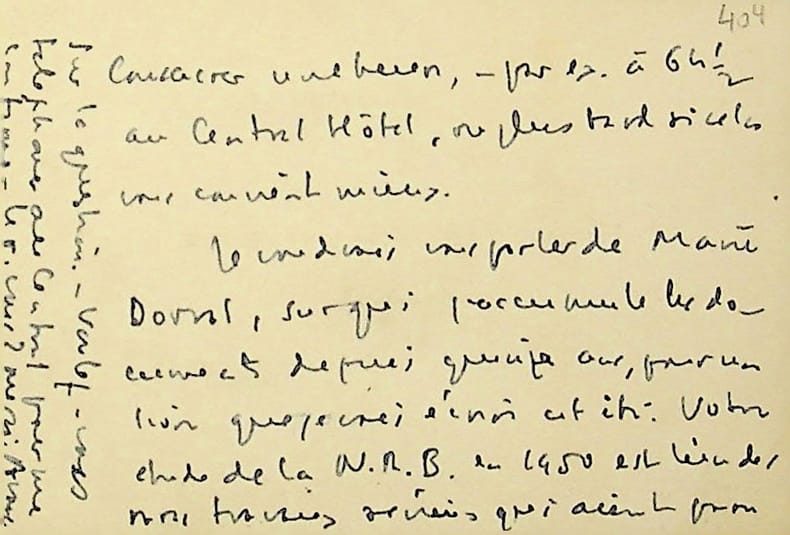 404
Consacrer une heure, – par ex. à 6 h ½
au Central Hôtel, ou plus tard si cela
vous convient mieux.
Je voudrais vous parler de Marie
Dorval, sur qui j'accumule les do-
cuments depuis quinze ans, pour un
livre que je vais écrire cet été. Votre
étude de la N.R.B. en 1950 est l'un des
rares travaux sérieux qui aient paru
sur la question. – Voulez-vous
téléphoner au Central pour me